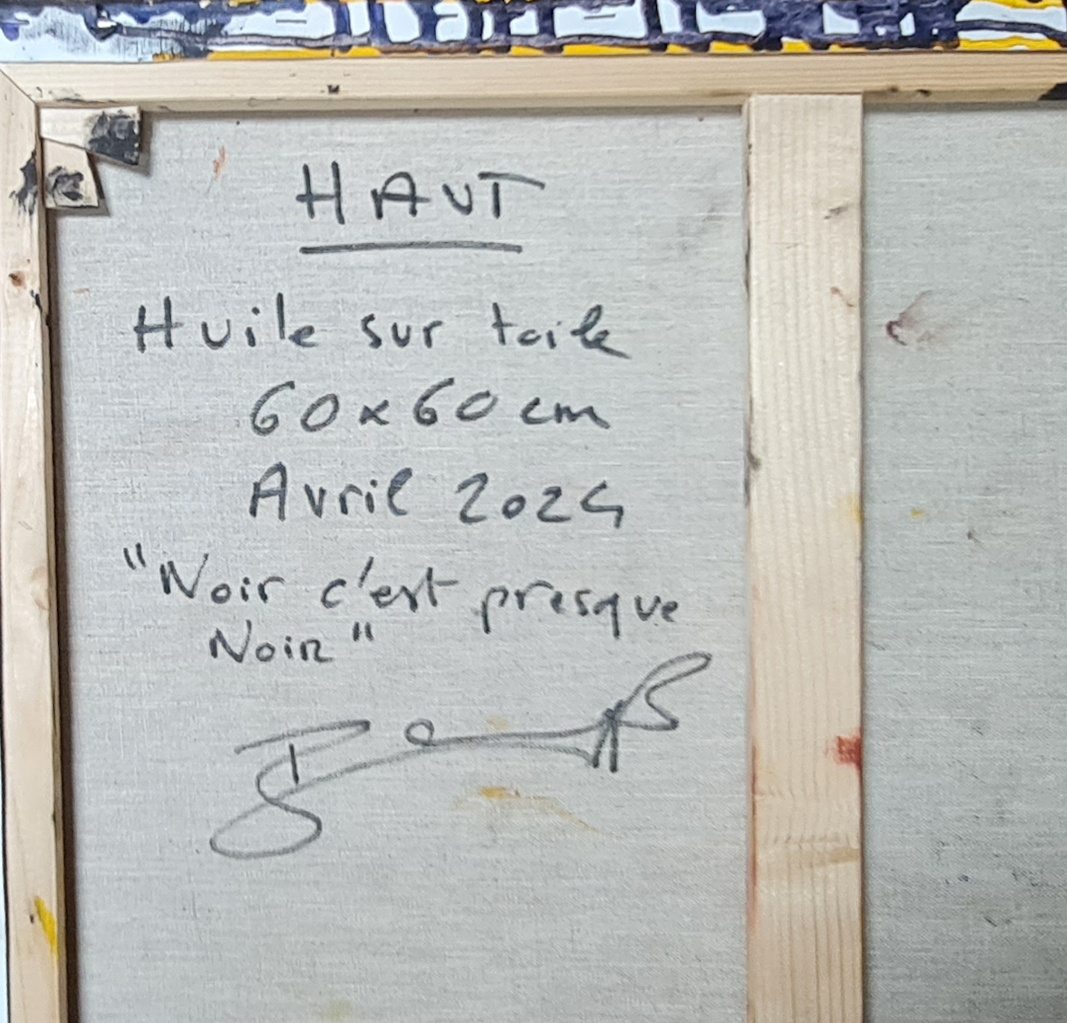 HAUT
Huile sur toile
60x60 cm
Avril 2024
"Noir c'est presque
Noir"